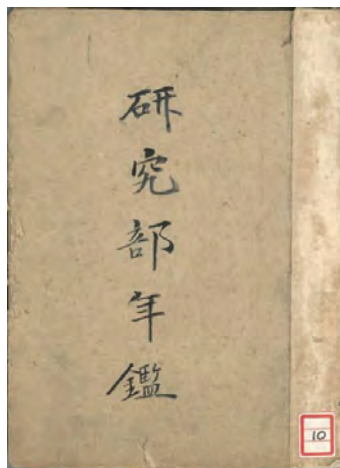 研究部年鑑
10